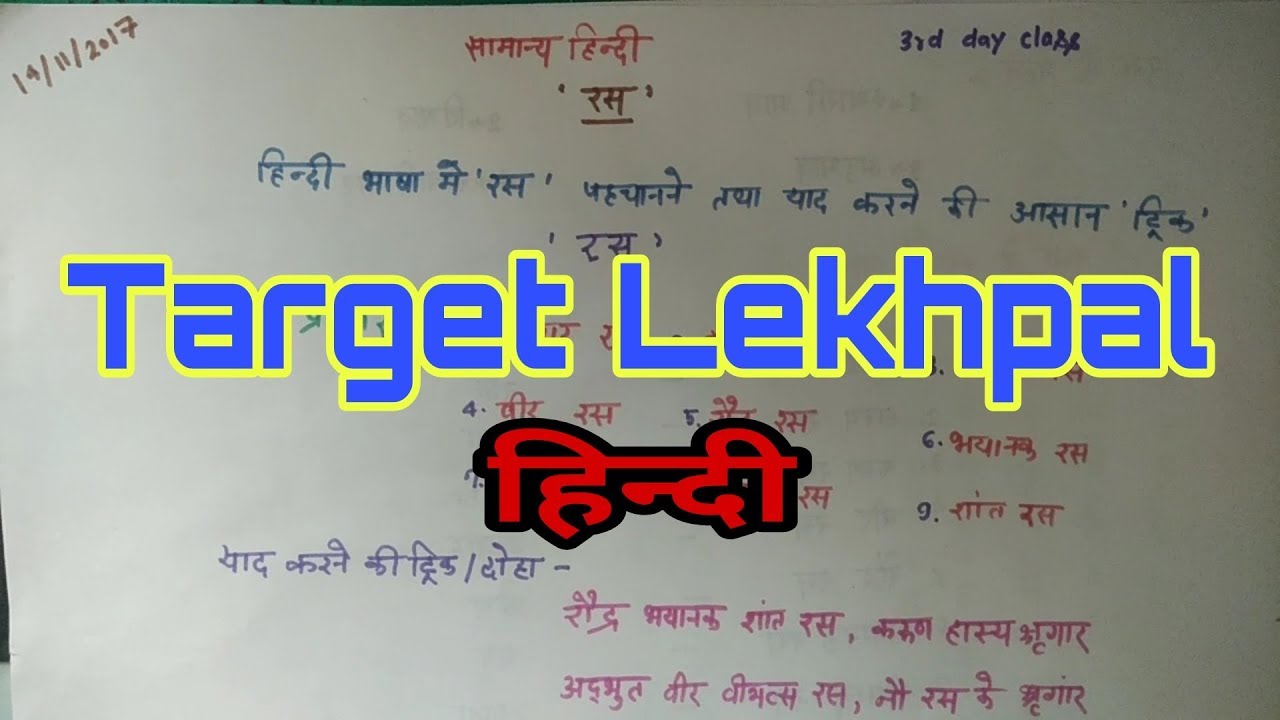 19/11/2017
सामान्य हिन्दी
3rd day class
' रस '
हिन्दी भाषा में 'रस' पहचानने तथा याद करने की आसान 'ट्रिक'
' रस '
Target Lekhpal
4. वीर रस 5. रौद्र रस
6. भयानक रस
हिन्दी
7. रस 9. शांत रस
याद करने की ट्रिक/दोहा -
रौद्र भयानक शांत रस, करुण हास्य श्रृगार
अद्भुत वीर वीभत्स रस, नौ रस के श्रृगांर